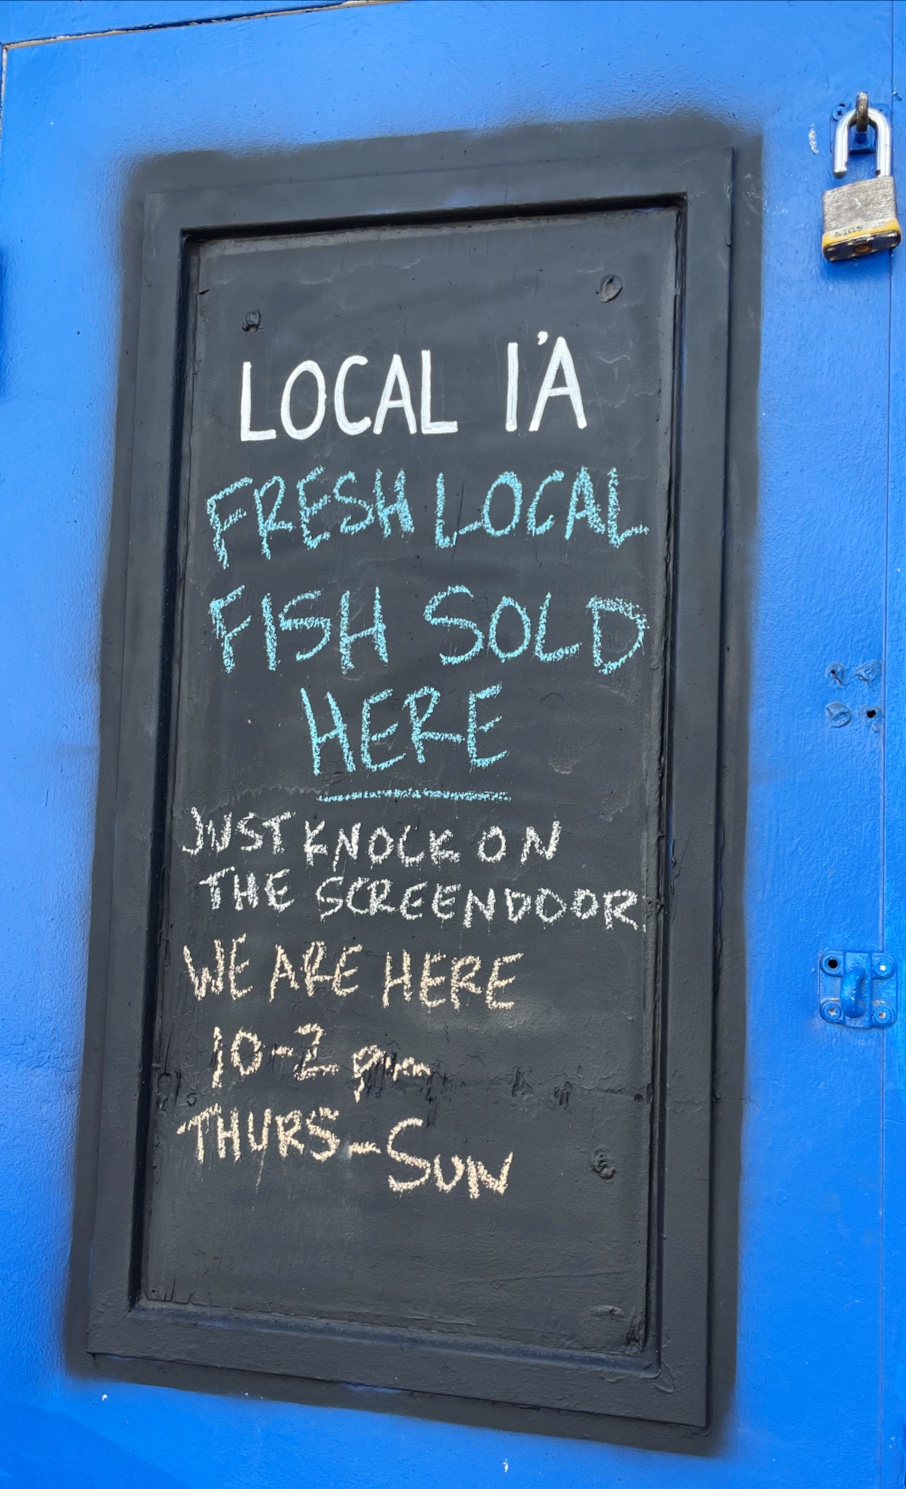 LOCAL I'A
FRESH LOCAL
FISH SOLD
HERE
JUST KNOCK ON
THE SCREENDOOR
WE ARE HERE
10-2 pm
THURS-SUN